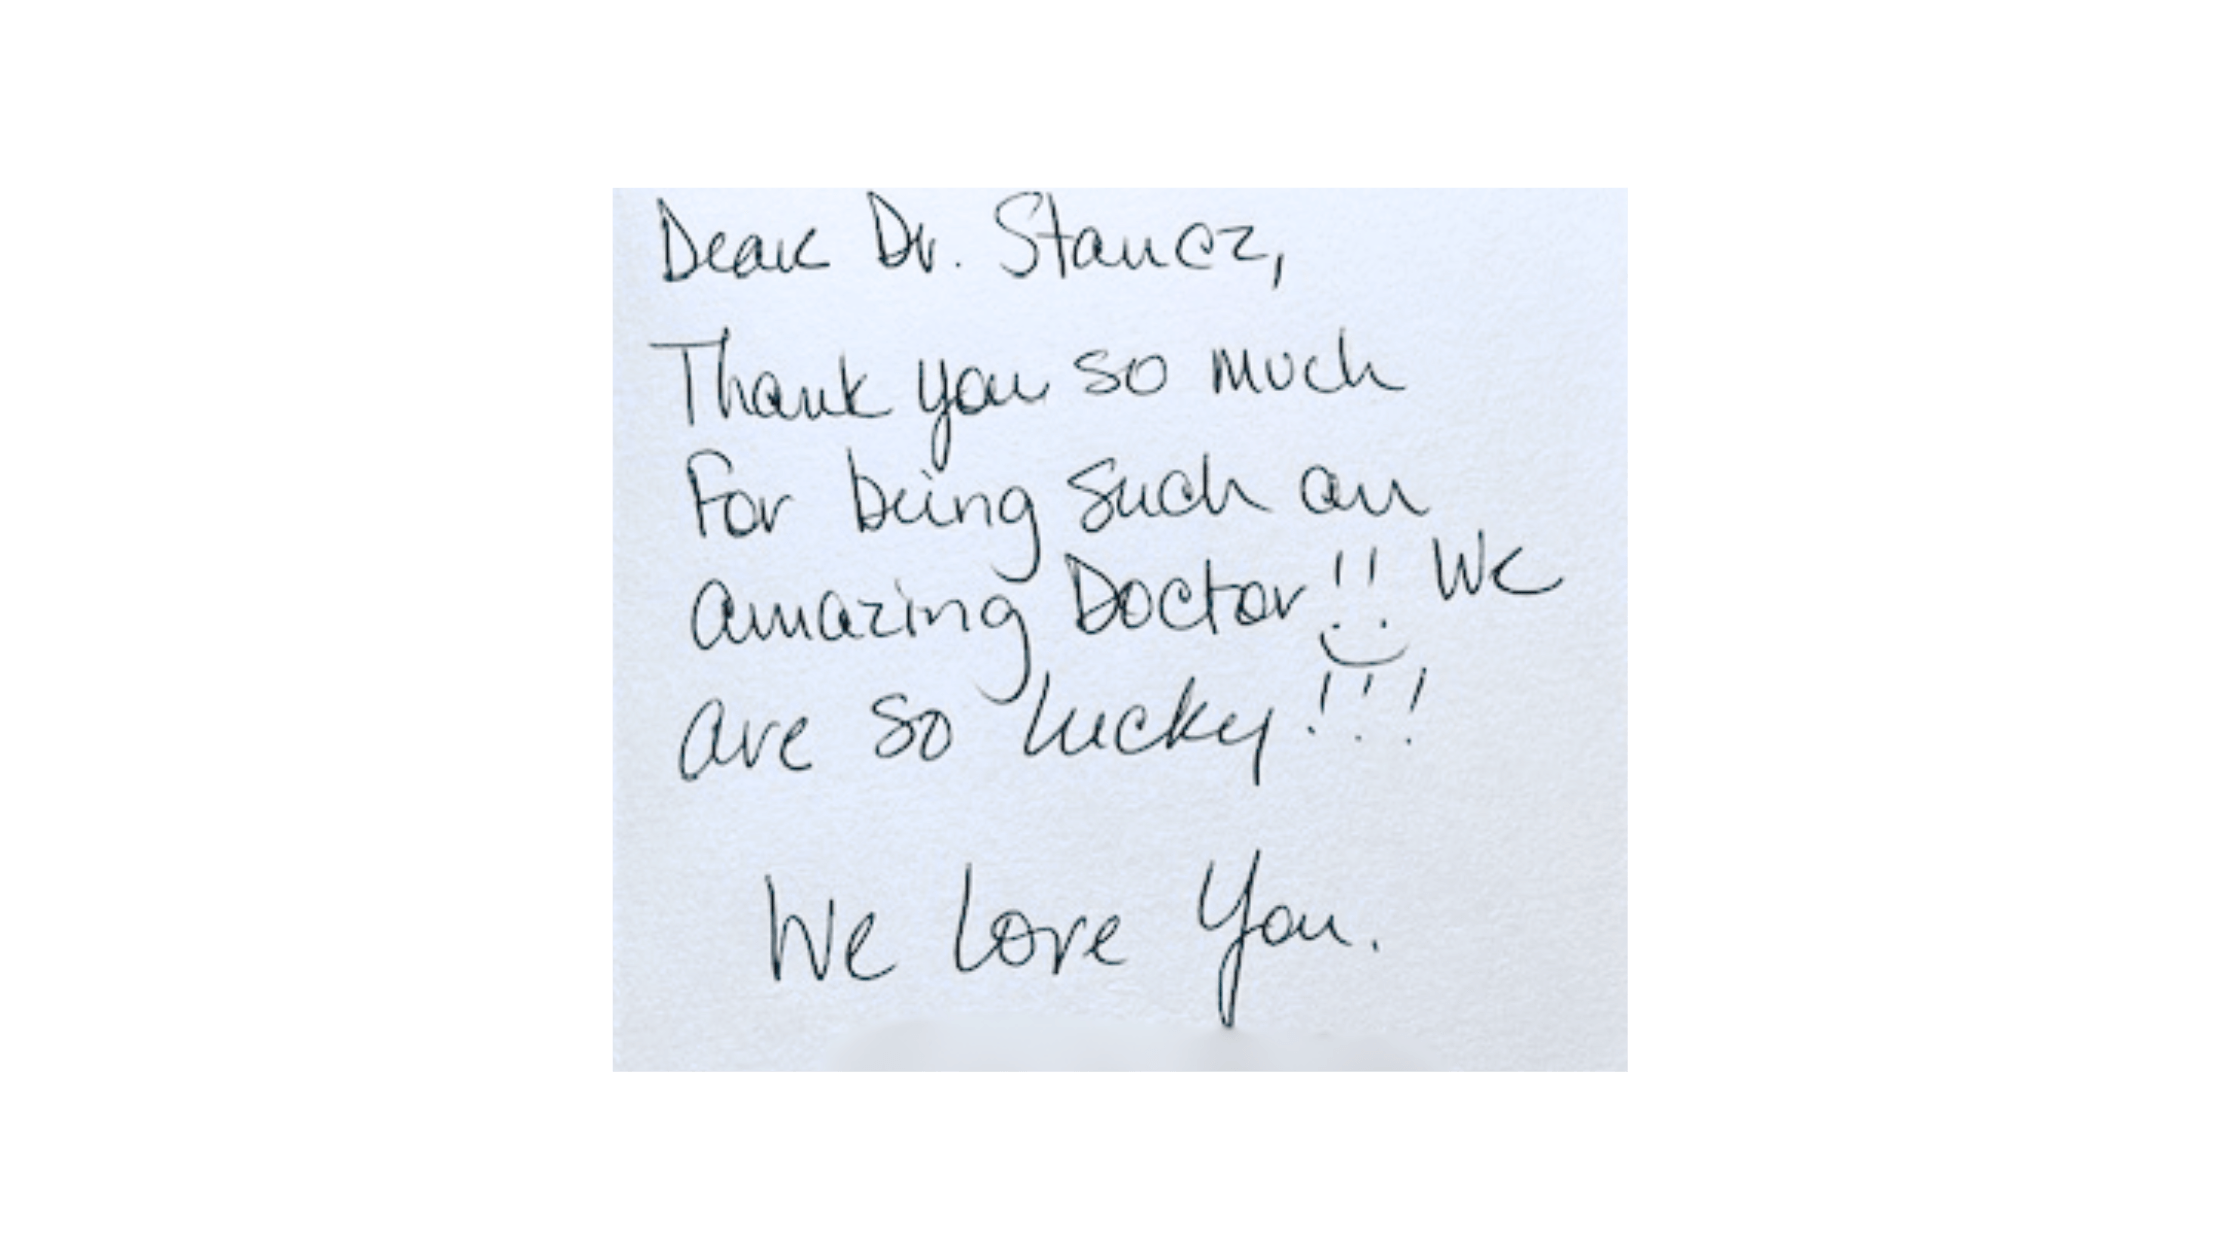 Dear Dr. Stancz,
Thank you so much
For being such an
amazing Doctor!! We
are so lucky!!!
We Love You.